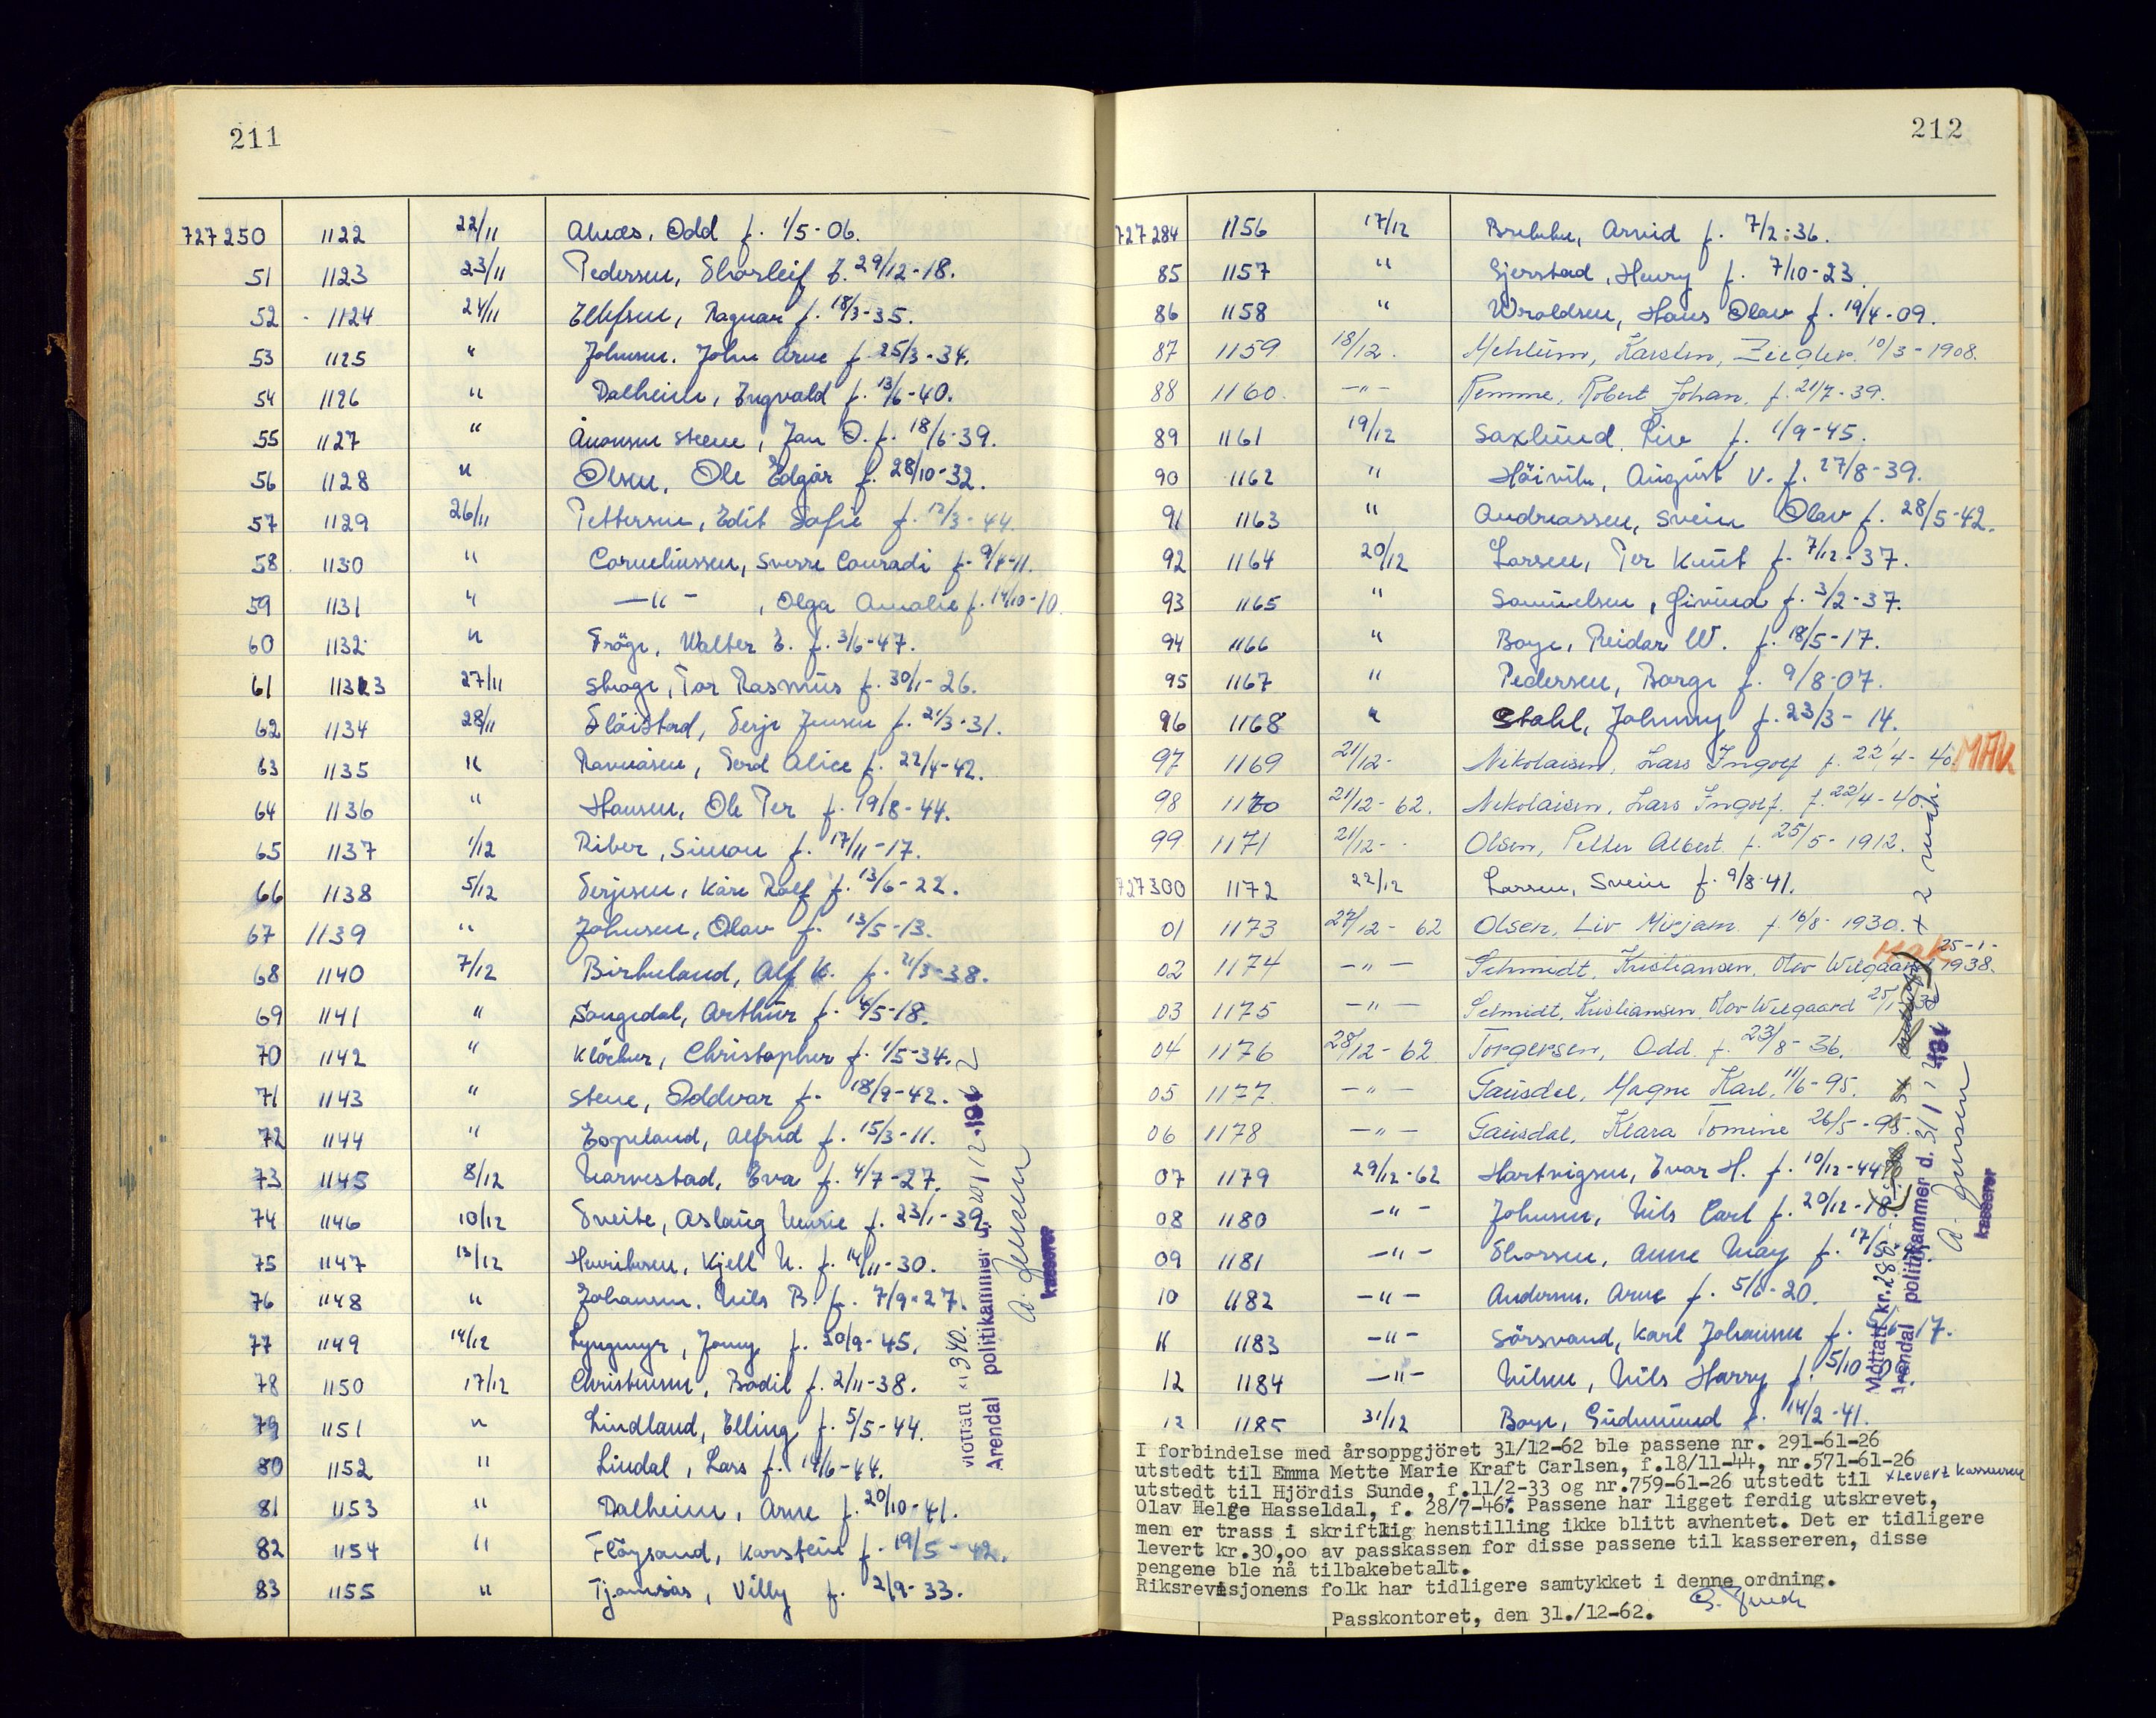 211
727250 1122 22/11 Alnæs, Odd f. 1/5-06.
51 1123 23/11 Pedersen, Thorleif f. 29/12-18.
52 1124 24/11 Ellefsen, Ragnar f. 18/3-35.
53 1125 " Johnsen, John Arne f. 25/3-34.
54 1126 " Dalheim, Engvald f. 13/6-40.
55 1127 " Aanonsen Steene, Jan O. f. 18/6-39.
56 1128 " Olsen, Ole Edgar f. 28/10-32.
57 1129 26/11 Pettersen, Edit Sofie f. 12/3-44.
58 1130 " Corneliussen, Sverre Conradi f. 9/4-11.
59 1131 " —"— , Olga Amalie f. 14/10-10.
60 1132 " Fröge, Walter E. f. 3/6-47.
61 1133 27/11 Skoge, Tor Rasmus f. 30/1-26.
62 1134 28/11 Flöistad, Terje Jensen f. 21/3-31.
63 1135 " Ravnåsen, Gerd Alice f. 22/4-42.
64 1136 " Hansen, Ole Per f. 19/8-44.
65 1137 1/12 Riber, Simon f. 17/11-17.
66 1138 5/12 Terjesen, Kåre Rolf f. 13/6-22.
67 1139 " Johnsen, Olav f. 13/5-13.
68 1140 7/12 Birkeland, Alf K. f. 21/3-38.
69 1141 " Songedal, Arthur f. 4/5-18.
70 1142 " Klöcker, Christopher f. 1/5-34.
71 1143 " Stene, Oddvar f. 18/9-42.
72 1144 " Espeland, Alfred f. 15/3-11.
73 1145 8/12 Narvestad, Eva f. 4/7-27.
74 1146 10/12 Tveite, Aslaug Marie f. 23/1-39.
75 1147 13/12 Henriksen, Kjell N. f. 14/11-30.
76 1148 " Johansen, Nils B. f. 7/9-27.
77 1149 14/12 Lyngmyr, Jonny f. 20/9-45.
78 1150 17/12 Christensen, Bodil f. 2/11-38.
79 1151 " Lindland, Elling f. 5/5-44.
80 1152 " Lindal, Lars f. 19/6-44.
81 1153 " Dalheim, Arne f. 20/10-41.
82 1154 " Flöysand, Karstein f. 19/5-42.
83 1155 " Tjomsås, Villy f. 2/9-33.
Mottatt kr. 340.
Arendal politikammer d. 20/12-1962
A. Jensen
kasserer
212
727284 1156 17/12 Brekke, Arvid f. 7/2-36.
85 1157 " Gjerstad, Henry f. 7/10-23.
86 1158 " Wroldsen, Hans Olav f. 19/4-09.
87 1159 18/12. Mehlum, Karsten, Ziegler. 10/3-1908.
88 1160. —"— Remme, Robert Johan. f. 21/7-39.
89 1161 19/12 Saxlund, Liv f. 1/9-45.
90 1162 " Höivik, August V. f. 27/8-39.
91 1163 " Andreassen, Svein Olav f. 28/5-42.
92 1164 20/12 Larsen, Per Knut f. 7/12-37.
93 1165 " Samuelsen, Eivind f. 3/2-37.
94 1166 " Boye, Reidar W. f. 18/5-17.
95 1167 " Pedersen, Borge f. 9/8-07.
96 1168 " Stahl, Johnny f. 23/3-14.
97 1169 21/12- Nikolaisen, Lars Ingolf f. 22/4-40. MAK
98 1170 21/12-62. Nikolaisen, Lars Ingolf. f. 22/4-40.
99 1171 21/12- Olsen, Petter Albert f. 25/5-1912.
727300 1172 22/12 Larsen, Svein f. 9/8-41.
01 1173 27/12-62 Olsen, Liv Mirjam f. 16/8-1930.
02 1174 —"— Schmidt, Kristiansen, Olov Welgaard 25-1-1938. MAK
03 1175 —"— Schmidt, Kristiansen, Olov Welgaard 25/1-38
04 1176 28/12-62 Torgersen, Odd. f. 23/8-36.
05 1177. —"— Gausdal, Magne Karl. 11/6-95.
06 1178 —"— Gausdal, Klara Tomine 26/5-95.
07 1179 29/12-62 Hartvigsen, Evar H. f. 10/12-44
08 1180 —"— Johnsen, Nils Carl f. 20/12-18.
09 1181 —"— Thorsen, Anne May f. 17/5
10 1182 —"— Andersen, Arne f. 5/6-20.
11 1183 —"— Sörsvand, Karl Johansen f. 17.
12 1184 —"— Nilsen, Nils Harry f. 5/10
13 1185 31/12 Boye, Gudmund f. 14/2-41.
Mottatt kr. 280.
Arendal politikammer d. 31/12
A. Jensen
kasserer
I forbindelse med årsoppgjöret 31/12-62 ble passene nr. 291-61-26
utstedt til Emma Mette Marie Kraft Carlsen, f.18/11-44, nr.571-61-26
utstedt til Hjördis Sunde, f.11/2-33 og nr.759-61-26 utstedt til
x Levert kassereren
Olav Helge Hasseldal, f. 28/7-46. Passene har ligget ferdig utskrevet,
men er trass i skriftlig henstilling ikke blitt avhentet. Det er tidligere
levert kr.30,oo av passkassen for disse passene til kassereren, disse
pengene ble nå tilbakebetalt.
Riksrevisjonens folk har tidligere samtykket i denne ordning.
Passkontoret, den 31./12-62.